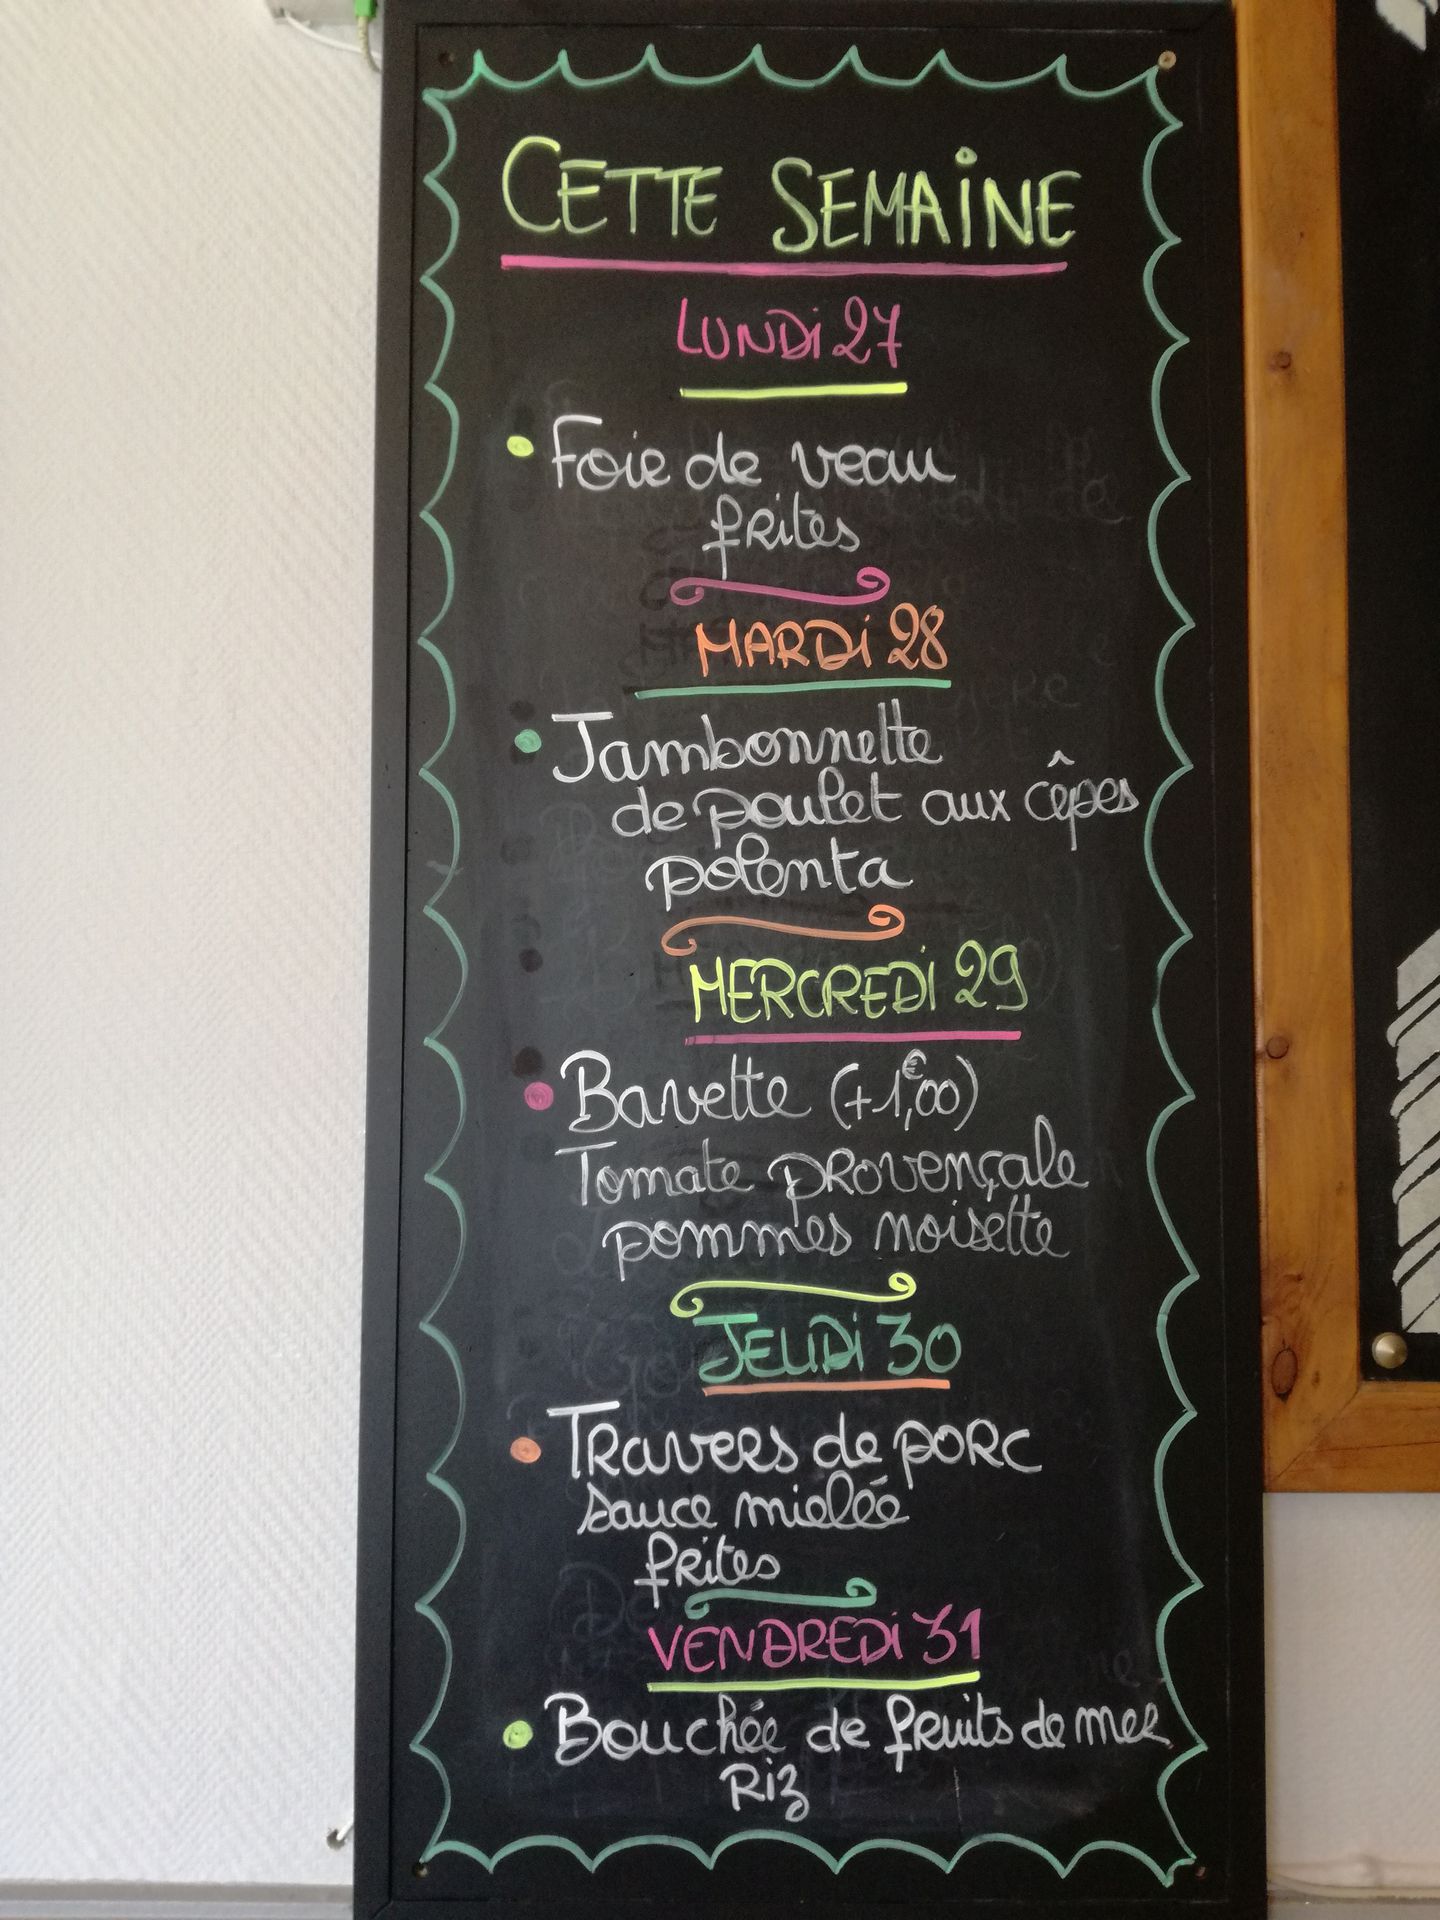 CETTE SEMAINE
LUNDI 27
Foie de veau
frites
MARDI 28
Jambonnette
de poulet aux cêpes
polenta
MERCREDI 29
Bavette (+1,€00)
Tomate provençale
pommes noisette
JEUDI 30
Travers de porc
sauce miellée
frites
VENDREDI 31
Bouchée de fruits de mer
Riz